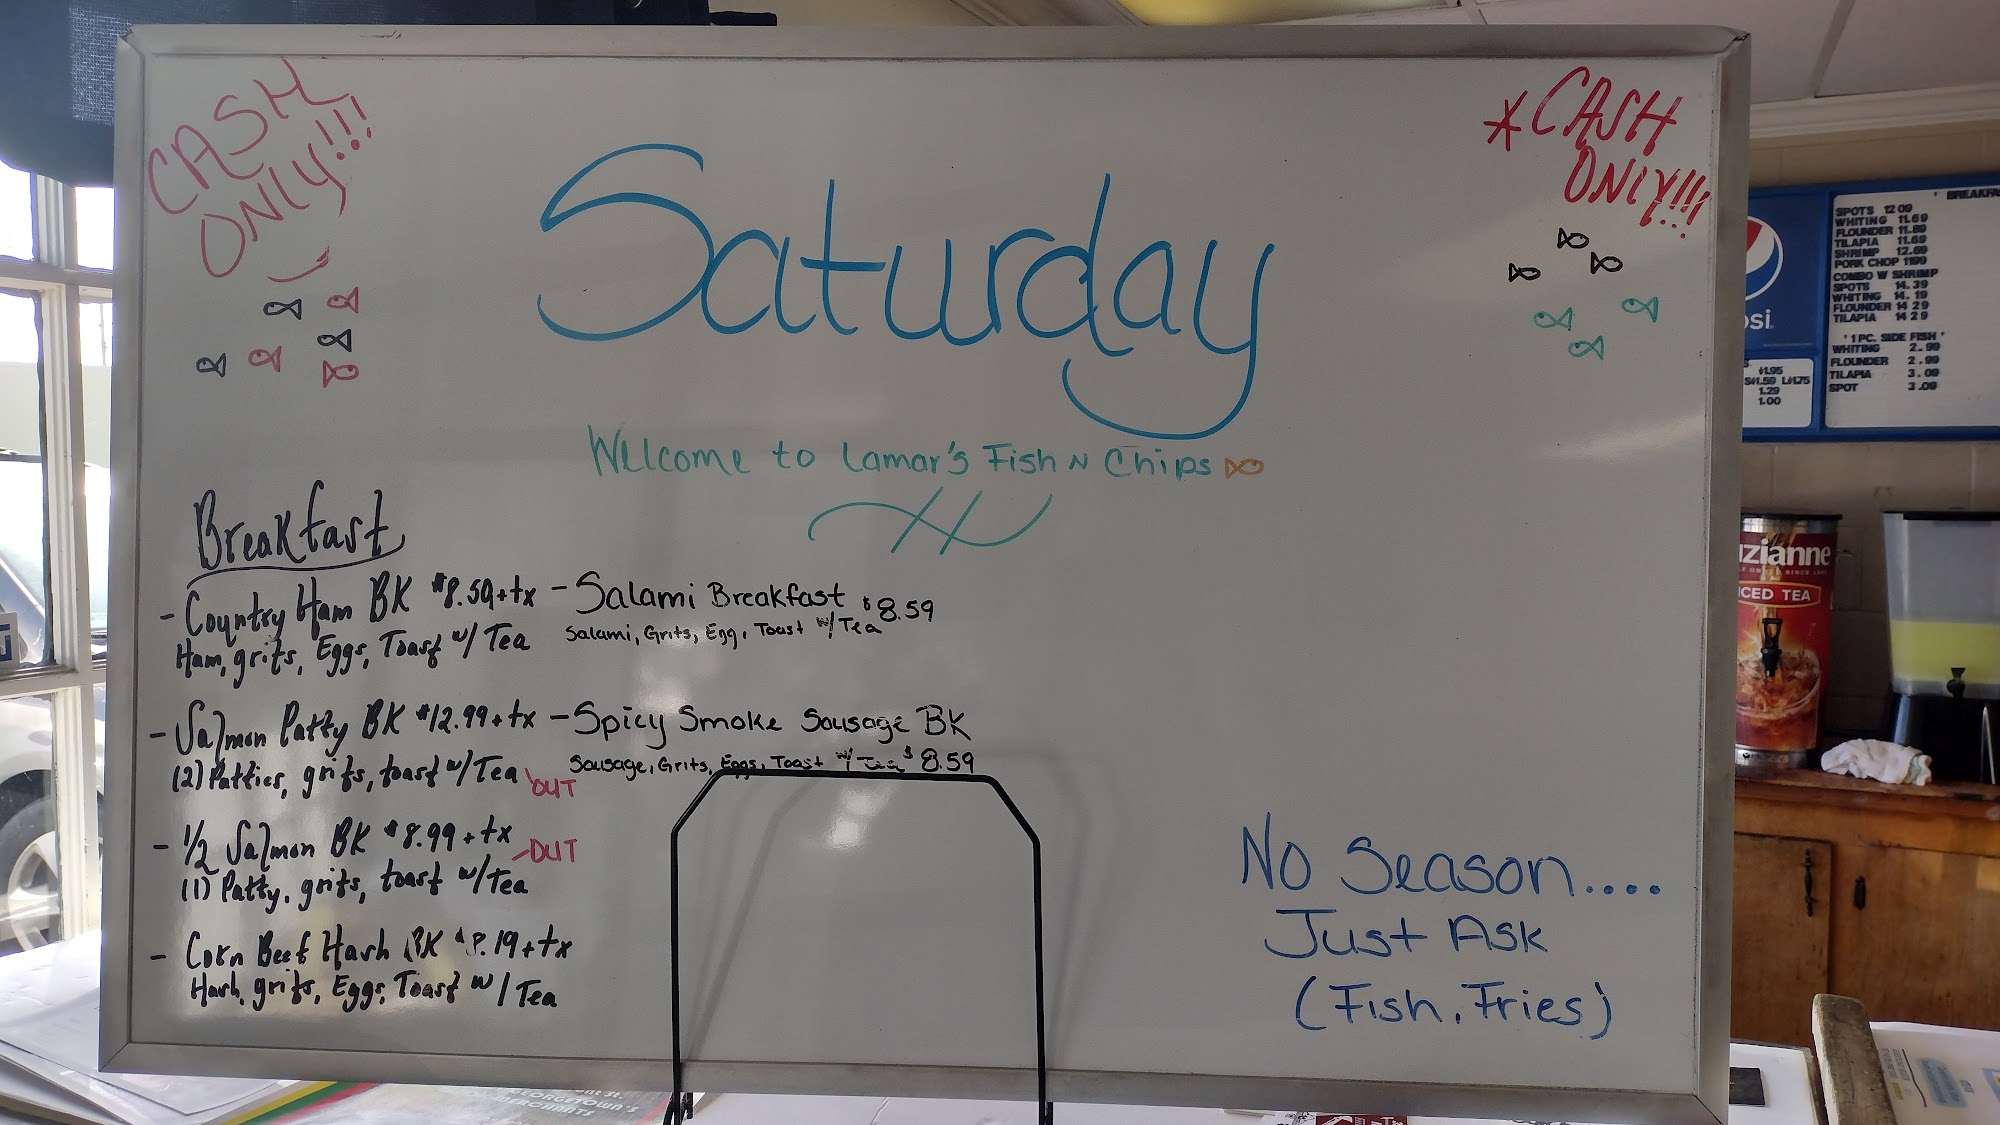 CASH
ONLY!!!
*CASH
ONLY!!!
Saturday
Welcome to Lamar's Fish N Chips
Breakfast
- Country Ham BK $8.59+tx
Ham, grits, Eggs, Toast w/ Tea
- Salmon Patty BK $12.99+tx
(2) Patties, grits, toast w/ Tea \OUT
- 1/2 Salmon BK $8.99+tx
-OUT
(1) Patty, grits, toast w/Tea
- Corn Beef Hash BK $8.19+tx
Hash, grits, Eggs, Toast w/ Tea
- Salami Breakfast
Salami, Grits, Egg, Toast w/Tea $8.59
- Spicy Smoke Sausage BK
Sausage, Grits, Eggs, Toast w/ Tea $8.59
No Season....
Just Ask
(Fish, Fries)
' BREAKFA
SPOTS 12 09
WHITING 11.69
FLOUNDER 11.89
TILAPIA 11.69
SHRIMP 12.69
PORK CHOP 11 99
COMBO W SHRIMP
SPOTS 14.39
WHITING 14.19
FLOUNDER 14 29
TILAPIA 14 29
' 1 PC. SIDE FISH '
WHITING 2.99
FLOUNDER 2.99
TILAPIA 3.09
SPOT 3.09
psi
$1.95
S$1.59 L$1.75
1.29
1.00
uzianne
ICED TEA
ont St.
GEORGETOWN'S
MERCHANTS